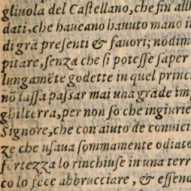 gliuola del Castellano, che fin all
dati, che haueano hauuto mano i
di grã presenti & fauori; nõdim
pitare, senza che si potesse saper
lungamẽte godette in quel princ
nõ lassa passar mai una grãde im
ghilterra, per non so che ingiurie
Signore, che con aiuto de conuic
ze che usaua sommamente odiato
fortezza lo rinchiuse in una terr
co lo fece abbrucciare, & essem